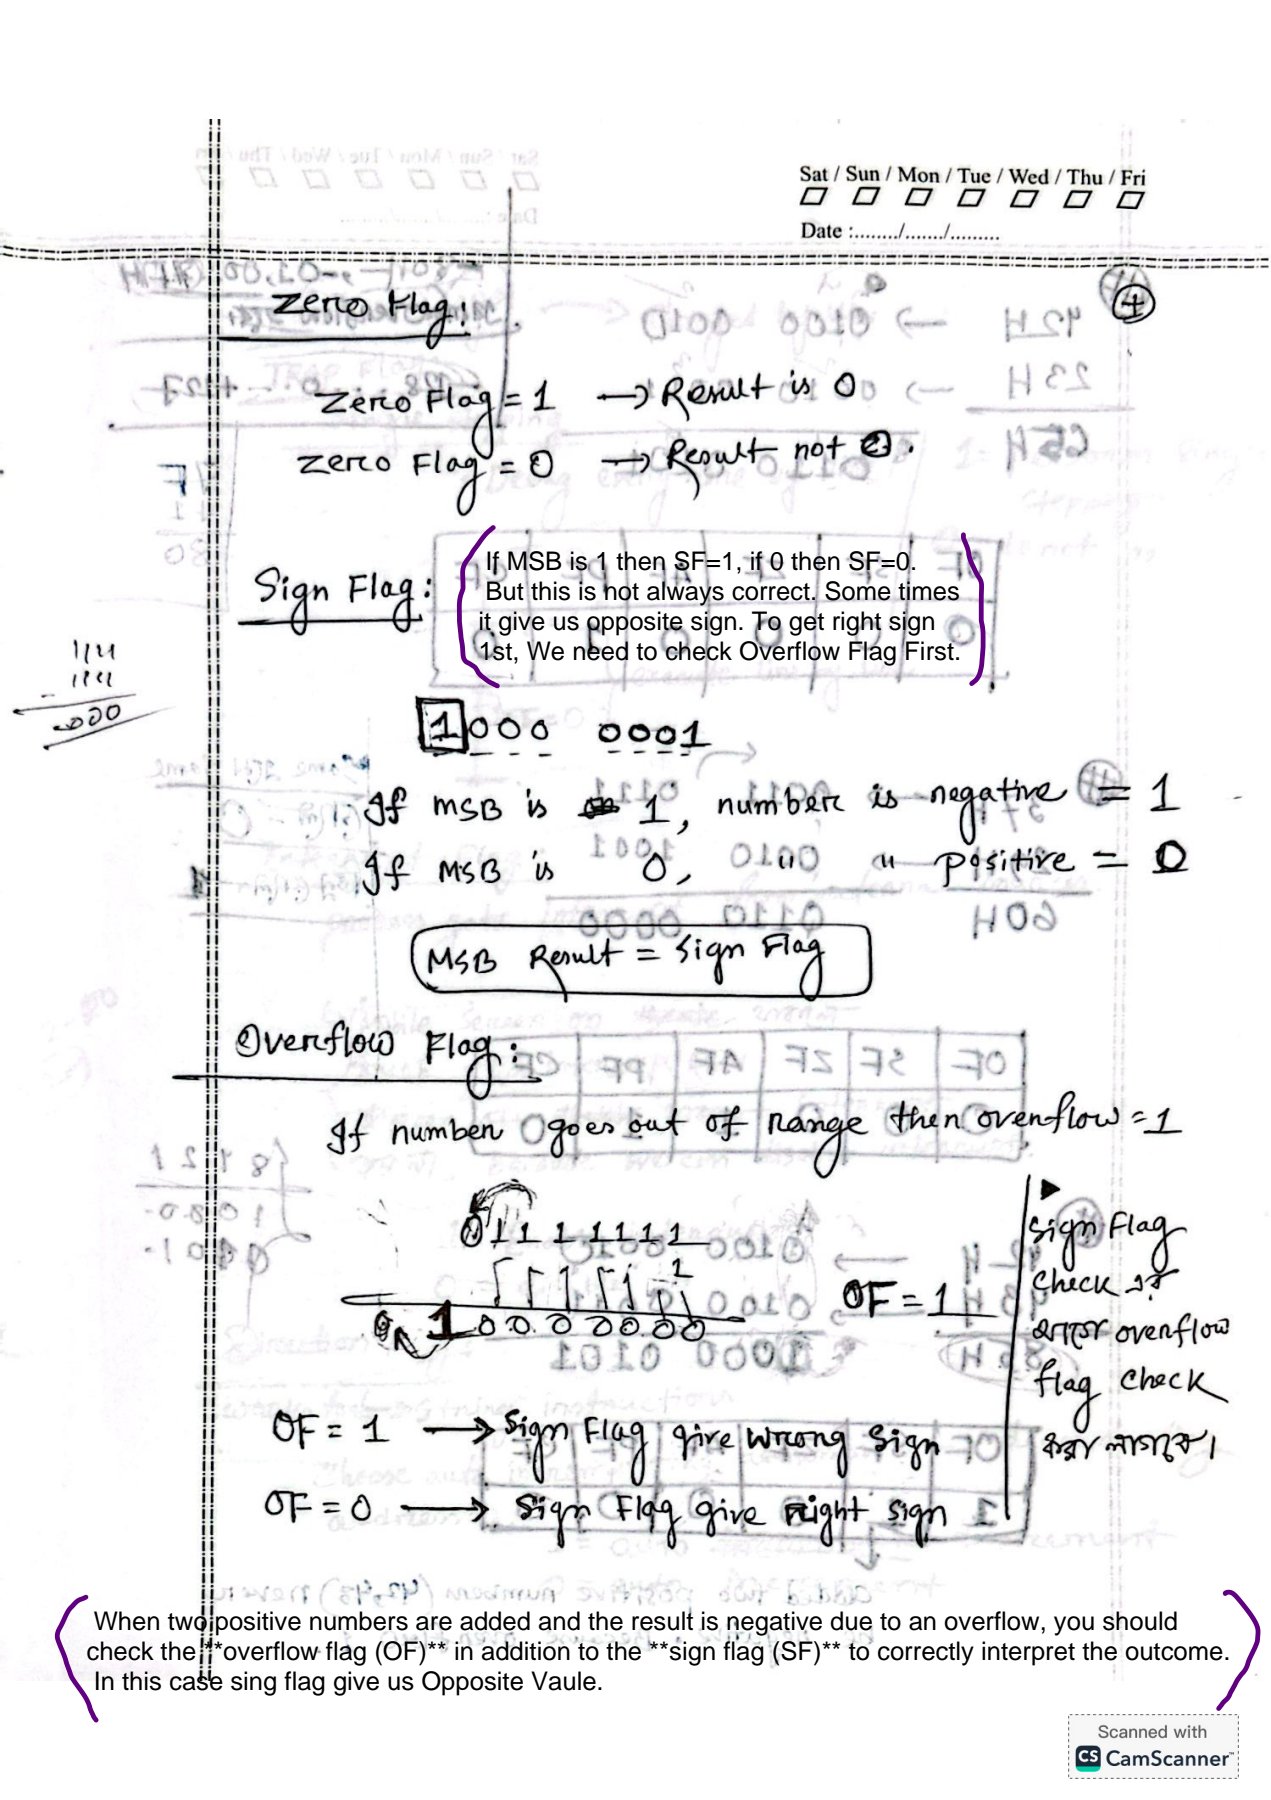 Sat / Sun / Mon / Tue / Wed / Thu / Fri
Date :......../......./.........
4
Zero Flag:
Zero Flag = 1 → Result is 0
Zero Flag = 0 → Result not 0.
Sign Flag:
If MSB is 1 then SF=1, if 0 then SF=0.
But this is not always correct. Some times
it give us opposite sign. To get right sign
1st, We need to check Overflow Flag First.
1111
1111
000
1000 0001
If MSB is 1, number is negative = 1
If MSB is 0, " " positive = 0
MSB Result = Sign Flag
Overflow Flag:
If number goes out of range then overflow = 1
01111111
1
10000000
OF = 1
Sign Flag
check এর
আগে overflow
flag check
করা লাগবে।
OF = 1 → Sign Flag give wrong sign
OF = 0 → Sign Flag give right sign
When two positive numbers are added and the result is negative due to an overflow, you should
check the **overflow flag (OF)** in addition to the **sign flag (SF)** to correctly interpret the outcome.
In this case sing flag give us Opposite Vaule.
Scanned with
CS CamScanner